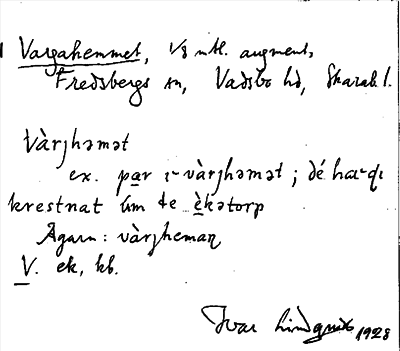 Vargahemmet, 1/8 mtl. augment,
Fredsbergs sn, Vadsbo hd, Skarab. l.
Vàrɟhəmət
ex. par i vàrɟhəmət ; dé ha
krestnat um te èkətorp
Ägarn : vàrɟheman
V. ek, kb.
Ivar Lindquist 1928